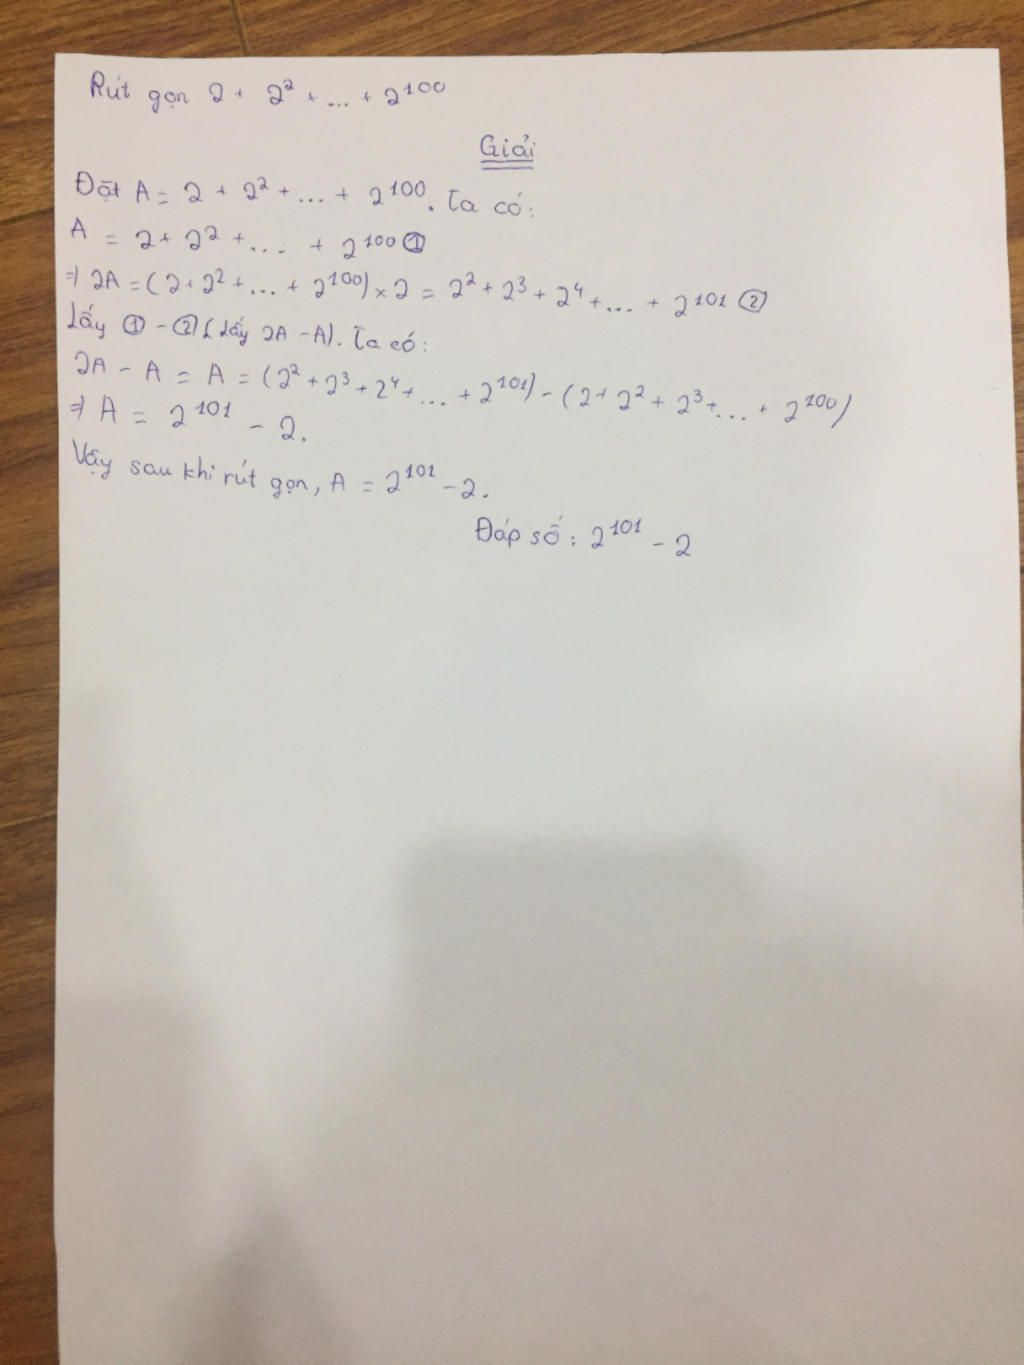 Rút gọn 2 + 2² + ... + 2¹⁰⁰
Giải
Đặt A = 2 + 2² + ... + 2¹⁰⁰. Ta có:
A = 2 + 2² + ... + 2¹⁰⁰ ①
⇒ 2A = (2 + 2² + ... + 2¹⁰⁰) × 2 = 2² + 2³ + 2⁴ + ... + 2¹⁰¹ ②
Lấy ① - ② (Lấy 2A - A). Ta có:
2A - A = A = (2² + 2³ + 2⁴ + ... + 2¹⁰¹) - (2 + 2² + 2³ + ... + 2¹⁰⁰)
⇒ A = 2¹⁰¹ - 2.
Vậy sau khi rút gọn, A = 2¹⁰¹ - 2.
Đáp số: 2¹⁰¹ - 2